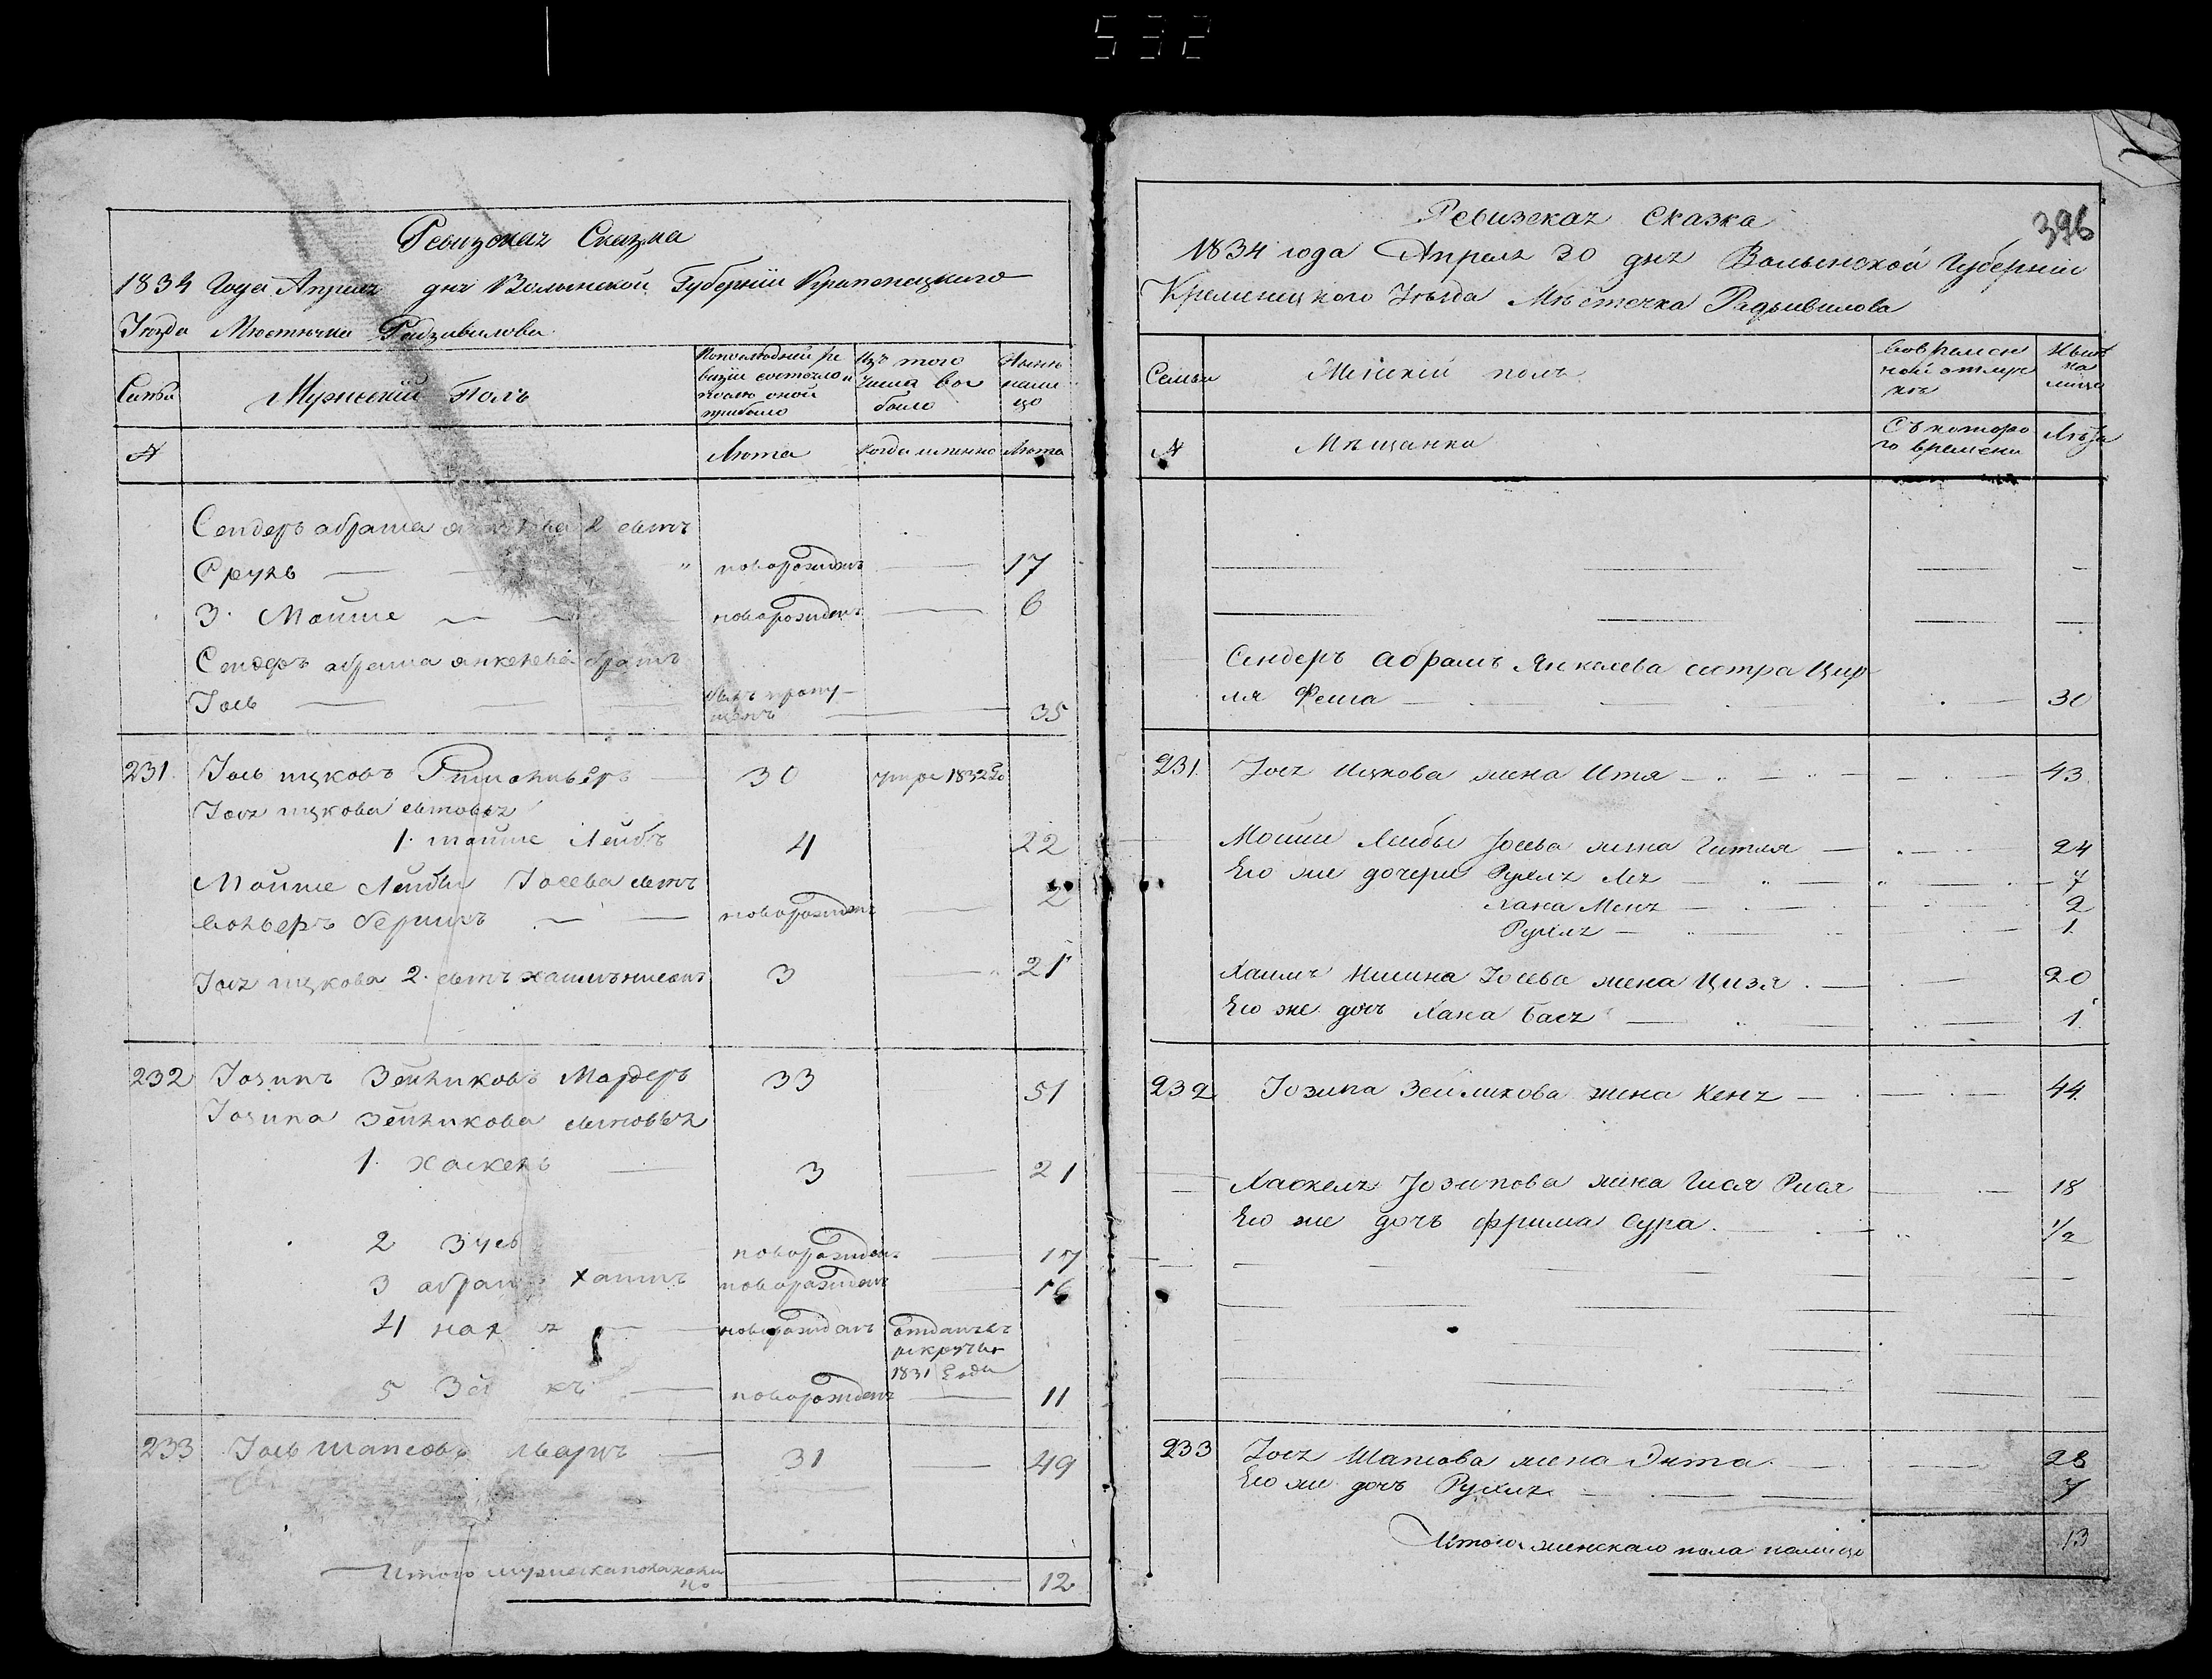 532
Ревизская Сказка
1834 Года Апреля дня Волынской Губернии Кременецкого
Уезда Мюстечка Радзивилова
Семьи
Мужеский Полъ
По последней ре
визіи состояло и
после оной
прибыло
Изъ того
числа вы
было
Ныне
нали
цо
№
Люта
когда именно
Люта
Сендеръ абрама сынъ
Сруль — — " новорожденъ — 17
3. Мойше — — новорожденъ — 6
Сендеръ абрама янкелева братъ
Іось — — былъ пропу-
щенъ — 35
231. Іось ицковъ — 30 умре 1832 го
Іося ицкова сыновья
1. мойше Лейбъ 4 22
Мойше Лейбы Іосева сынъ
волверъ беришъ — — новорожденъ — 2
Іося ицкова 2. сынъ хаимъ нисонъ 3 — 21
232 Іозипъ Зейликовъ Мардеръ 33 51
Іозипа Зейликова сыновья
1. хаскель — 3 — 21
2 Зусь новорожденъ — 17
3 абрам хаимъ новорожденъ — 16
4 — новорожденъ отданъ въ
рекруты
1831 года
5 — новорожденъ — 11
233 Іось шапсовъ — 31 — 49
Итого мужеска пола нали
цо — — 12
396
Ревизская Сказка
1834 года Апреля 30 дня Волынской Губерніи
Кременецкого Уъзда Мъстечка Радзивилова
Семьи
Женскій полъ
Во времен
ной отлуч
ке
Ныне
на
лицо
№
Мъщанка
Съ которо
го времени
Лъта
Сендеръ Абрамъ Янкелева сестра Цир
ля Фейга — — 30
231. Іося Ицкова жена Итя — 43.
Мойши Лейбы Іосева жена Гитля — 24
Его же дочери Рухля Лея — 7
Хана Меня — 2
Рухля — 1.
Хаимъ Нисина Іосева жена Цизя — 20
Его же дочь Хана Бася — 1.
232 Іозипа Зейликова жена Кеня — 44.
Хаскеля Іозипова жена Гися Рися — 18
Его же дочь фрима Сура. — 1/2
233 Іося Шапсова жена Энта. — 28
Его же дочь Рухля — 7
Итого женскаго пола налицо 13